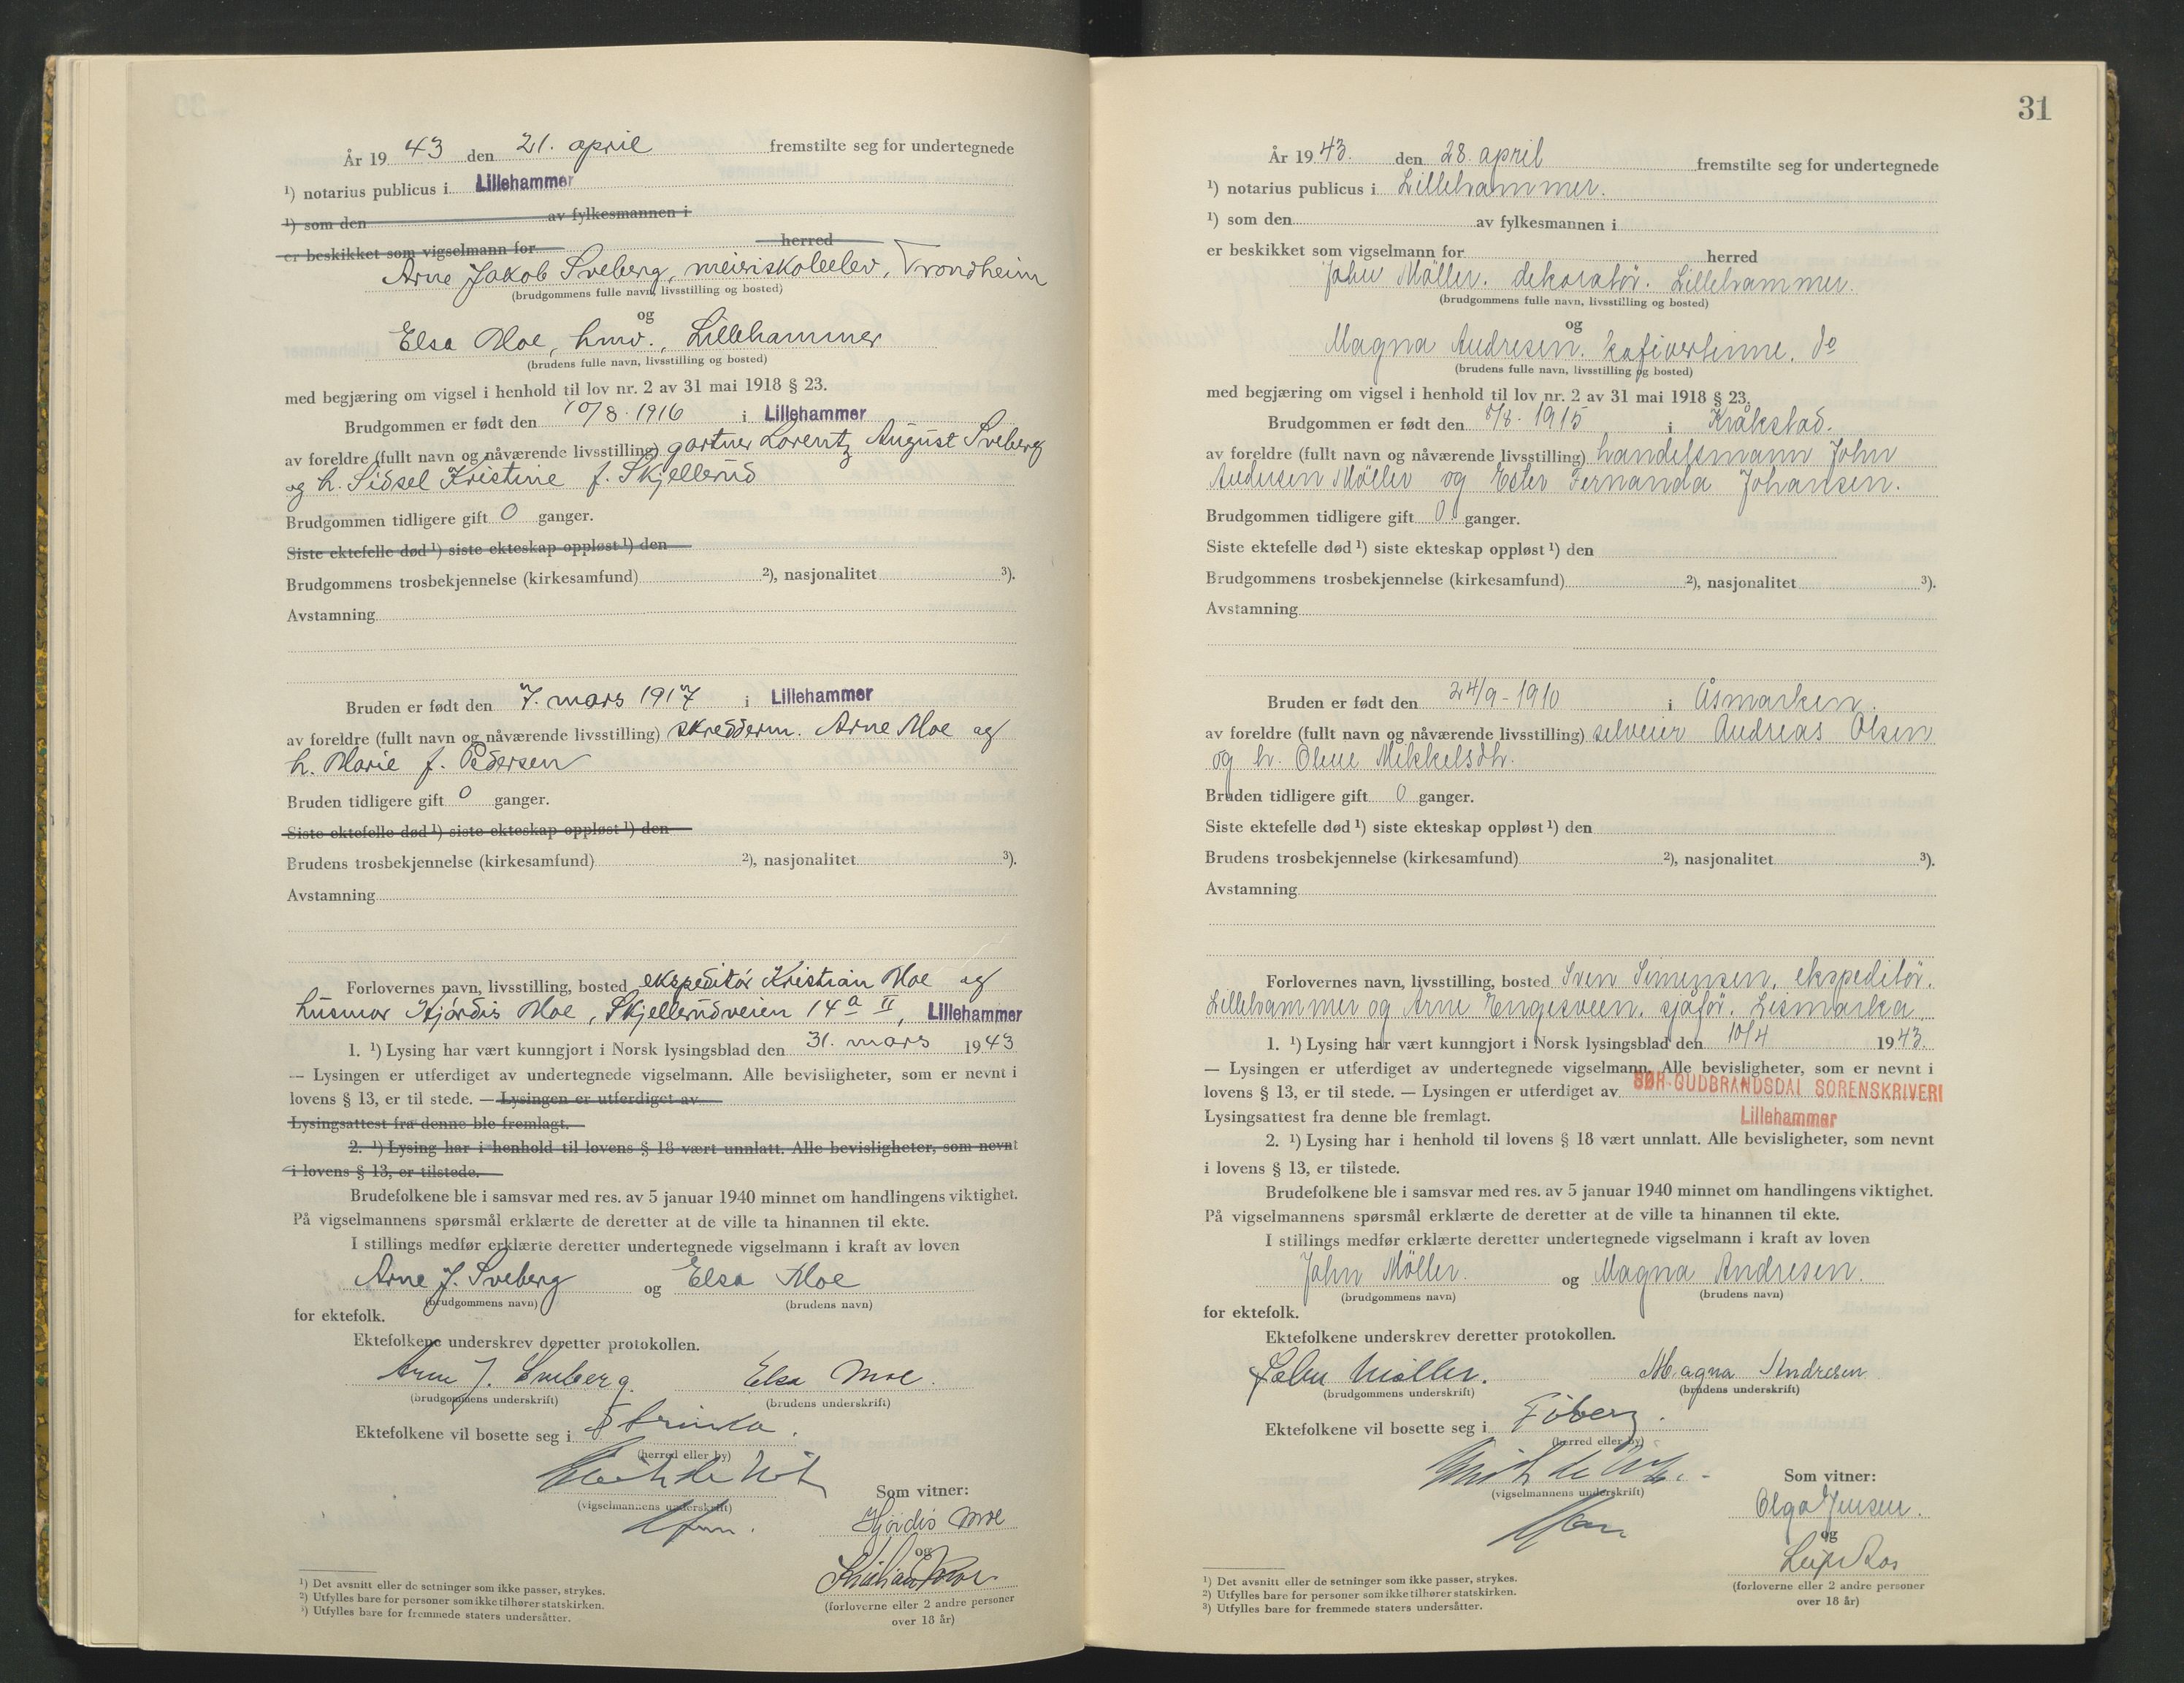 År 19 43 den 21. april fremstilte seg for undertegnede
¹) notarius publicus i Lillehammer
¹) som den av fylkesmannen i
er beskikket som vigselmann for herred
Arne Jakob Sveberg, meieriskoleelev, Trondheim
(brudgommens fulle navn, livsstilling og bosted)
og
Elsa Moe, hmv., Lillehammer
(brudens fulle navn, livsstilling og bosted)
med begjæring om vigsel i henhold til lov nr. 2 av 31 mai 1918 § 23.
Brudgommen er født den 10/8. 1916 i Lillehammer
av foreldre (fullt navn og nåværende livsstilling) gartner Lorentz August Sveberg
og h. Sidsel Kristine f. Skjellerud
Brudgommen tidligere gift 0 ganger.
Siste ektefelle død ¹) siste ekteskap oppløst ¹) den
Brudgommens trosbekjennelse (kirkesamfund) ²), nasjonalitet ³).
Avstamning
Bruden er født den 7. mars 1917 i Lillehammer
av foreldre (fullt navn og nåværende livsstilling) skredderm. Arne Moe og
h. Marie f. Pedersen
Bruden tidligere gift 0 ganger.
Siste ektefelle død ¹) siste ekteskap oppløst ¹) den
Brudens trosbekjennelse (kirkesamfund) ²), nasjonalitet ³).
Avstamning
Forlovernes navn, livsstilling, bosted ekspeditør Kristian Moe og
husmor Hjørdis Moe, Skjellerudveien 14a II, Lillehammer
1. ¹) Lysing har vært kunngjort i Norsk lysingsblad den 31. mars 1943
— Lysingen er utferdiget av undertegnede vigselmann. Alle bevisligheter, som er nevnt i
lovens § 13, er til stede. — Lysingen er utferdiget av
Lysingsattest fra denne ble fremlagt.
2. ¹) Lysing har i henhold til lovens § 18 vært unnlatt. Alle bevisligheter, som nevnt
i lovens § 13, er tilstede.
Brudefolkene ble i samsvar med res. av 5 januar 1940 minnet om handlingens viktighet.
På vigselmannens spørsmål erklærte de deretter at de ville ta hinannen til ekte.
I stillings medfør erklærte deretter undertegnede vigselmann i kraft av loven
Arne J. Sveberg og Elsa Moe
(brudgommens navn) (brudens navn)
for ektefolk.
Ektefolkene underskrev deretter protokollen.
Arne J. Sveberg Elsa Moe.
(brudgommens underskrift) (brudens underskrift)
Ektefolkene vil bosette seg i Strinda.
(herred eller by)
(vigselmannens underskrift)
Som vitner:
Hjørdis Moe
og
Kristian Moe
(forloverne eller 2 andre personer
over 18 år)
¹) Det avsnitt eller de setninger som ikke passer, strykes.
²) Utfylles bare for personer som ikke tilhører statskirken.
³) Utfylles bare for fremmede staters undersåtter.
31
År 19 43. den 28. april fremstilte seg for undertegnede
¹) notarius publicus i Lillehammer.
¹) som den av fylkesmannen i
er beskikket som vigselmann for herred
John Möller. dekoratör. Lillehammer.
(brudgommens fulle navn, livsstilling og bosted)
og
Magna Andresen. kafévertinne. do
(brudens fulle navn, livsstilling og bosted)
med begjæring om vigsel i henhold til lov nr. 2 av 31 mai 1918 § 23.
Brudgommen er født den 8/8. 1915 i Kråkstad.
av foreldre (fullt navn og nåværende livsstilling) handelsmann John
Andersen Möller og Ester Fernanda Johansen.
Brudgommen tidligere gift 0 ganger.
Siste ektefelle død ¹) siste ekteskap oppløst ¹) den
Brudgommens trosbekjennelse (kirkesamfund) ²), nasjonalitet ³).
Avstamning
Bruden er født den 24/9-1910 i Åsmarken.
av foreldre (fullt navn og nåværende livsstilling) selveier Andreas Olsen
og h. Oline Mikkelsdtr.
Bruden tidligere gift 0 ganger.
Siste ektefelle død ¹) siste ekteskap oppløst ¹) den
Brudens trosbekjennelse (kirkesamfund) ²), nasjonalitet ³).
Avstamning
Forlovernes navn, livsstilling, bosted Sven Simensen, ekspeditör.
Lillehammer og Arne Engesveen. sjåför. Lismarka.
1. ¹) Lysing har vært kunngjort i Norsk lysingsblad den 10/4 1943.
— Lysingen er utferdiget av undertegnede vigselmann. Alle bevisligheter, som er nevnt i
lovens § 13, er til stede. — Lysingen er utferdiget av SØR-GUDBRANDSDAL SORENSKRIVERI
Lysingsattest fra denne ble fremlagt. Lillehammer
2. ¹) Lysing har i henhold til lovens § 18 vært unnlatt. Alle bevisligheter, som nevnt
i lovens § 13, er tilstede.
Brudefolkene ble i samsvar med res. av 5 januar 1940 minnet om handlingens viktighet.
På vigselmannens spørsmål erklærte de deretter at de ville ta hinannen til ekte.
I stillings medfør erklærte deretter undertegnede vigselmann i kraft av loven
John Möller. og Magna Andresen.
(brudgommens navn) (brudens navn)
for ektefolk.
Ektefolkene underskrev deretter protokollen.
John Møller. Magna Andresen
(brudgommens underskrift) (brudens underskrift)
Ektefolkene vil bosette seg i Fåberg.
(herred eller by)
(vigselmannens underskrift)
Som vitner:
Olga Jensen.
og
Leif
(forloverne eller 2 andre personer
over 18 år)
¹) Det avsnitt eller de setninger som ikke passer, strykes.
²) Utfylles bare for personer som ikke tilhører statskirken.
³) Utfylles bare for fremmede staters undersåtter.